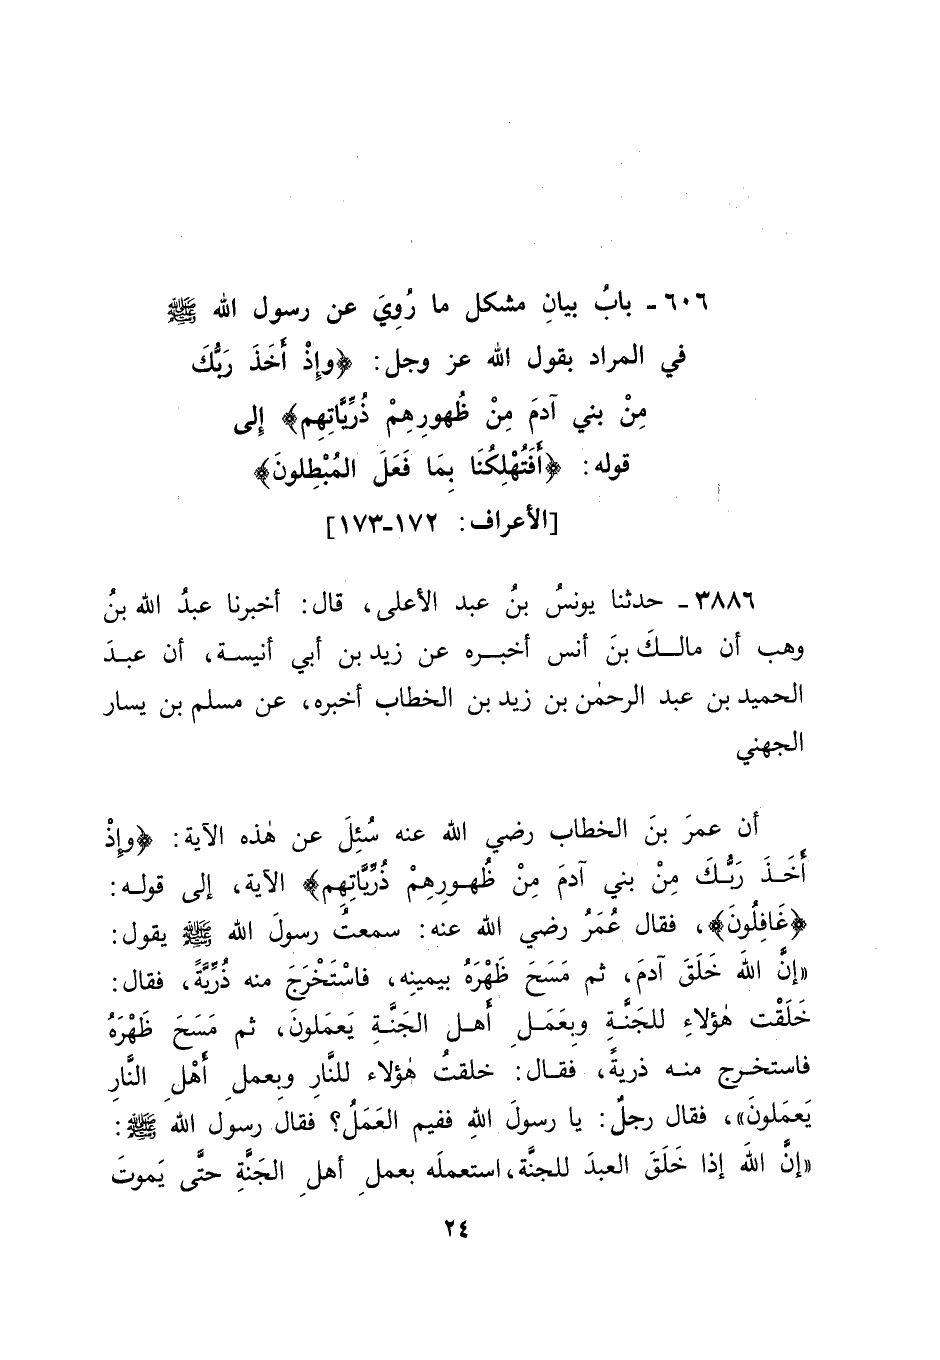 ٦٠٦ـ بابُ بيانِ مشكل ما رُوِيَ عن رسول الله ﷺ
في المراد بقول الله عز وجل: ﴿وإِذْ أَخَذَ رَبُّكَ
مِنْ بني آدمَ مِنْ ظُهورِهِمْ ذُرِّيَّاتِهِم﴾ إلى
قوله: ﴿أَفَتُهْلِكُنَا بِمَا فَعَلَ المُبْطِلونَ﴾
[الأعراف: ١٧٢ـ١٧٣]
٣٨٨٦ـ حدثنا يونسُ بنُ عبد الأعلى، قال: أخبرنا عبدُ الله بنُ
وهب أن مالكَ بنَ أنس أخبره عن زيد بن أبي أنيسة، أن عبدَ
الحميد بن عبد الرحمٰن بن زيد بن الخطاب أخبره، عن مسلم بن يسار
الجهني
أن عمرَ بنَ الخطاب رضي الله عنه سُئِلَ عن هٰذه الآية: ﴿وإِذْ
أَخَذَ رَبُّكَ مِنْ بني آدمَ مِنْ ظُهورِهِمْ ذُرِّيَّاتِهِم﴾ الآية، إلى قوله:
﴿غَافِلُونَ﴾، فقال عُمَرُ رضي الله عنه: سمعتُ رسولَ الله ﷺ يقول:
«إنَّ اللهَ خَلَقَ آدمَ، ثم مَسَحَ ظَهْرَهُ بيمينِه، فاسْتَخْرَجَ منه ذُرِّيَّةً، فقال:
خَلَقْت هٰؤلاءِ للجَنَّةِ وبعَمَلِ أَهلِ الجَنَّةِ يَعمَلونَ، ثم مَسَحَ ظَهْرَهُ
فاستخرج منه ذريةً، فقال: خلقتُ هٰؤلاء للنَّارِ وبعملِ أَهْلِ النَّارِ
يَعمَلونَ»، فقال رجلٌ: يا رسولَ اللهِ ففيم العَمَلُ؟ فقال رسول الله ﷺ:
«إنَّ اللهَ إذا خَلَقَ العبدَ للجنَّة، استعملَه بعملِ أهلِ الجَنَّةِ حتَّى يَموتَ
٢٤